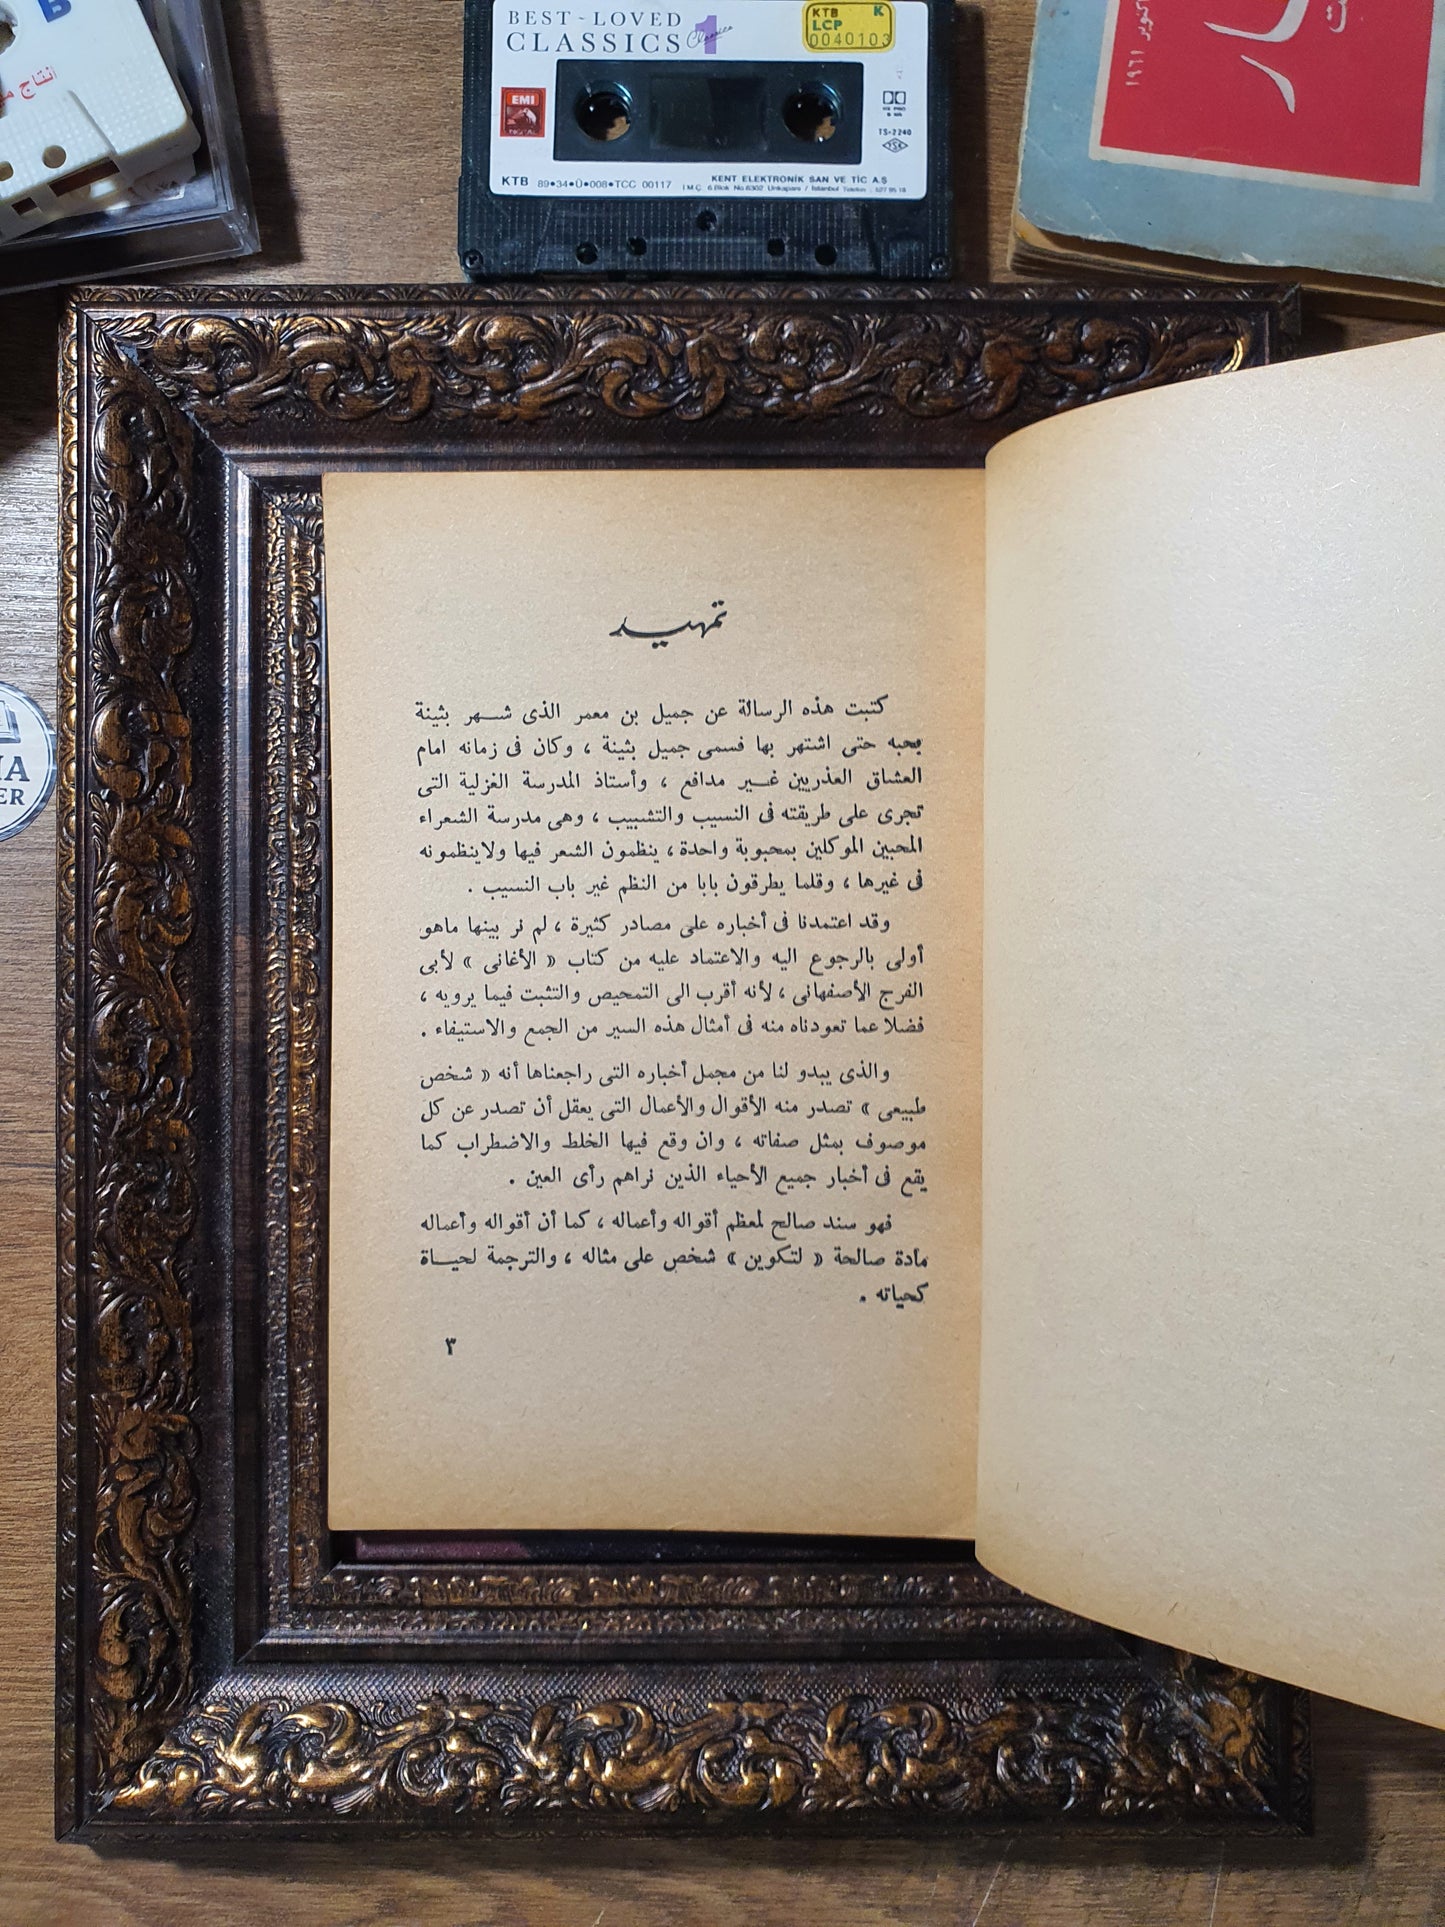 B
انتاج
BEST ~ LOVED
CLASSICS 1
Classics
KTB K
LCP
0040103
EMI
DIGITAL
TS-2240
TSK
KTB 89•34•Ü•008•TCC 00117
KENT ELEKTRONİK SAN VE TİC A.Ş
İ.M.Ç. 6.Blok No.6302 Unkapanı / İstanbul Telefon : 527 95 18
١٩٦١
تمهيد
كتبت هذه الرسالة عن جميل بن معمر الذى شـــهر بثينة
بحبه حتى اشتهر بها فسمى جميل بثينة ، وكان فى زمانه امام
العشاق العذريين غـــير مدافع ، وأستاذ المدرسة الغزلية التى
تجرى على طريقته فى النسيب والتشبيب ، وهى مدرسة الشعراء
المحبين الموكلين بمحبوبة واحدة ، ينظمون الشعر فيها ولاينظمونه
فى غيرها ، وقلما يطرقون بابا من النظم غير باب النسيب .
وقد اعتمدنا فى أخباره على مصادر كثيرة ، لم نر بينها ماهو
أولى بالرجوع اليه والاعتماد عليه من كتاب « الأغانى » لأبى
الفرج الأصفهانى ، لأنه أقرب الى التمحيص والتثبت فيما يرويه ،
فضلا عما تعودناه منه فى أمثال هذه السير من الجمع والاستيفاء .
والذى يبدو لنا من مجمل أخباره التى راجعناها أنه « شخص
طبيعى » تصدر منه الأقوال والأعمال التى يعقل أن تصدر عن كل
موصوف بمثل صفاته ، وان وقع فيها الخلط والاضطراب كما
يقع فى أخبار جميع الأحياء الذين نراهم رأى العين .
فهو سند صالح لمعظم أقواله وأعماله ، كما أن أقواله وأعماله
مادة صالحة « لتكوين » شخص على مثاله ، والترجمة لحيــاة
كحياته .
٣